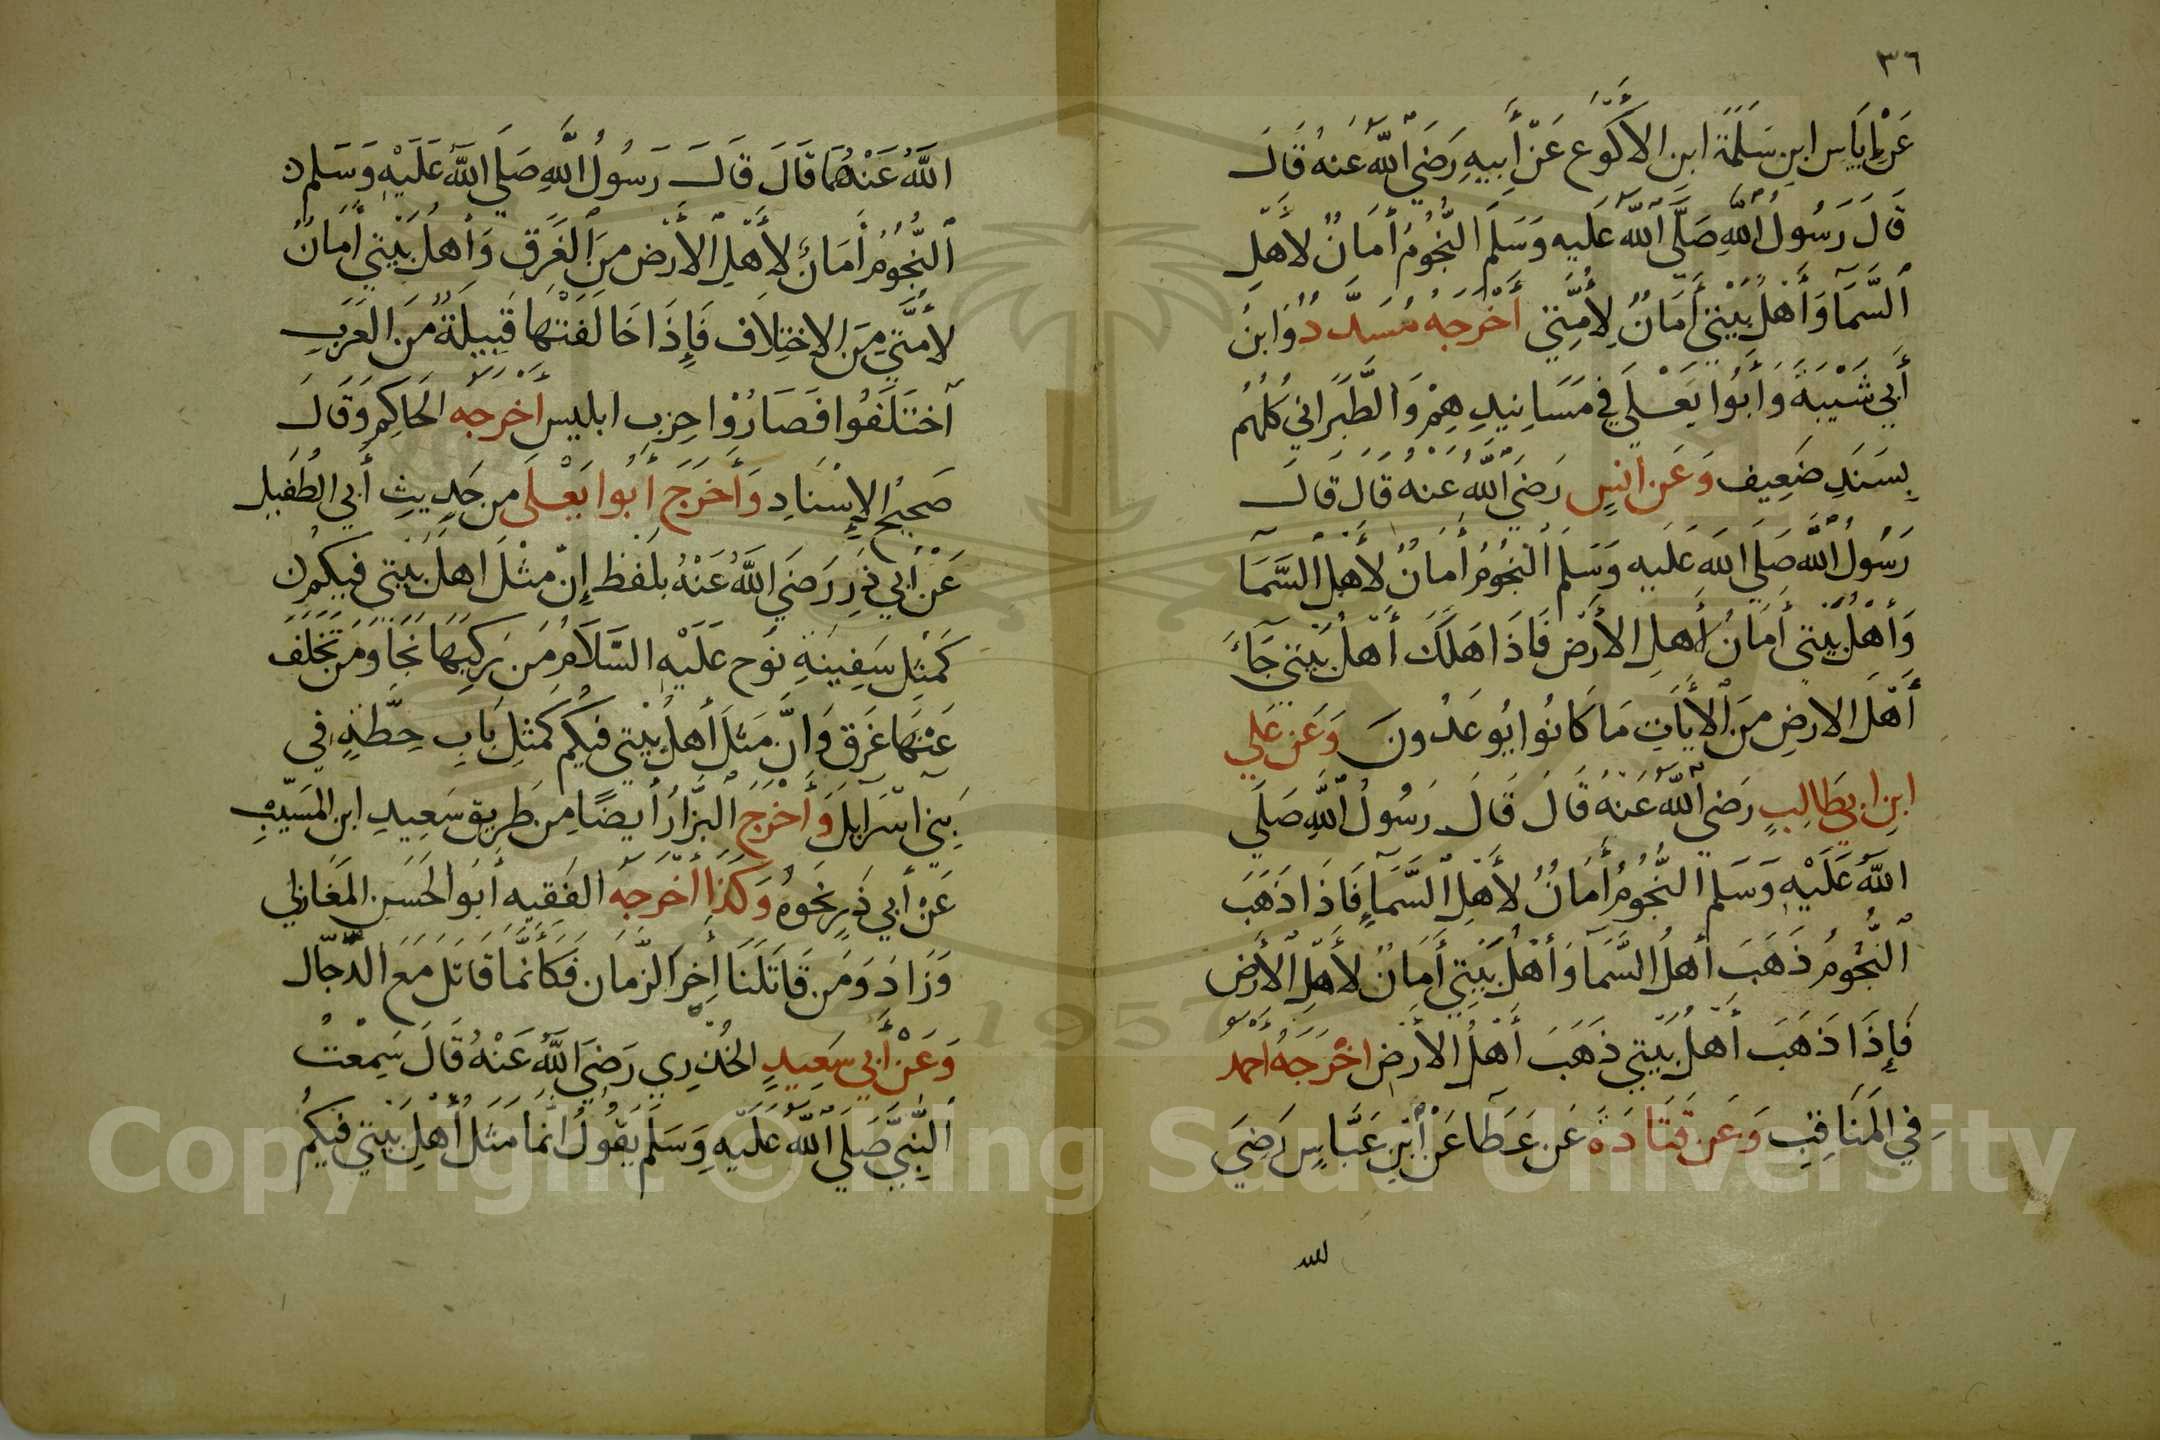 ٣٦
عَنْ إِيَاسِ ابنِ سَلَمَة ابن الأكْوَع عَنْ أَبِيهِ رَضَيَ اللّٰهُ عَنهُ قَالَ
قَالَ رَسُولُ اللّٰهِ صَلَّى اللّٰه عَلَيه وَسَلَّمَ النُّجُومُ أَمَانٌ لأَهْلِ
السَّمَآ وَأَهْلُ بَيْتِي أَمَانٌ لِأُمَّتِي أَخْرَجَهُ مُسَدَّدٌ وَابنُ
أَبِي شَيْبَةَ وَأَبُوا يَعْلَي فِي مَسَانِيدِهِمْ وَالطَّبَرَانِي كُلُّهُم
بِسَنَدِ ضَعِيف وَعَن انَسٍ رَضَي اللّٰهُ عَنهُ قَالَ قَالَ
رَسُولُ اللّٰه صَلَي اللهُ عَلَيهِ وَسَلَّمَ النُّجُومُ أَمَانٌ لأَهْلِ السَّمَا
وَأَهْلُ بَيْتِي أَمَانُ أَهلِ الأَرْضِ فَاذَا هَلَكَ أَهْلُ بَيْتِي جَآءَ
أَهْلَ الارضِ مِنَ الأَيَاتِ مَا كَانُوا يُوعَدُونَ وَعَن عَلِي
ابنِ ابي طَالِبٍ رَضيَ اللّٰهُ عَنهُ قَالَ قَالَ رَسُولُ اللّٰهِ صَلَي
اللّٰهُ عَلَيْهِ وَسَلم النُّجُومُ أَمَانٌ لأَهْلِ السَّمَآءِ فَاذَا ذَهَبَ
النُّجُومُ ذَهَبَ أَهلُ السَّمَآ وَأَهْلُ بَيْتِي أَمَانٌ لأَهْلِ الأَرضِ
فَإِذَا ذَهَبَ أَهْلُ بَيْتِي ذَهَبَ أَهْلُ الأَرْضِ اخْرَجَهُ احمد
فِي المَنَاقِبِ وَعَن قَتَادَةَ عَن عَطَا عَنْ ابْنِ عَبَّاسٍ رَضِيَ
لله
اللَّهُ عَنْهُمَا قَالَ قَالَ رَسُولُ اللَّهِ صَلَي اللّٰهُ عَلَيْهِ وَسَلم
النُّجُومُ أَمَانٌ لأَهْلِ الأَرْضِ مِنَ الغَرَقِ وَأَهلُ بَيْتِي أَمَانٌ
لأُمَّتِي مِنَ الاختِلَافِ فَإِذَا خَالَفَتْهَا قَبِيلَةٌ مِنَ العَرَبِ
اختَلَفُوا فَصَارُوْا حِزبَ ابليس أَخْرَجَهُ الحَاكِمُ وَقَالَ
صَحِيحُ الإِسْنَادِ وَأَخرَجَ أَبُوا يَعْلَى مِن حَدِيثِ أَبِي الطُفَيلِ
عَنْ أَبِي ذَرِ رَضَيَ اللَّهُ عَنْهُ بلَفظِ إِنّ مثْلَ اهلُ بَيْتِي فيكُم
كَمَثَلِ سَفِينَةِ نَوُح عَلَيْهِ السَّلَامُ مَن رَكِبَهَا نَجَا وَمَن تَخَلَّفَ
عَنْهَا غَرَق وَانَّ مَثَلَ أَهلُ بَيْتِي فيكُم كَمَثلِ بَابِ حِطَّةٍ فِي
بَنِي اسْرَآئِلَ وَأَخْرَجَ البَزَّارُ أَيضًا مِن طَرِيق سَعِيدِ ابن المسَيّبِ
عَنْ أَبي ذَرٍ نَحوَهُ وَكَذَا أَخْرَجَهُ الفَقِيه أَبُوا لحَسَن المَغَازِلي
وَزَادَ وَمَن قَاتَلَنَا آخِرَ الزَّمَان فَكَأَنَّمَا قَاتَلَ مَعَ الدَّجَّال
وَعَنْ أَبِي سَعِيدٍ الخُدْرِي رَضِيَ اللَّهُ عَنْهُ قَالَ سَمِعْتُ
النَّبِيَّ صَلَي اللّٰهُ عَلَيْهِ وَسَلَّم يَقُولُ انَّمَا مَثَلُ أَهْلِ بَيْتِي فيكُم
1957
Copyright © King Saud University